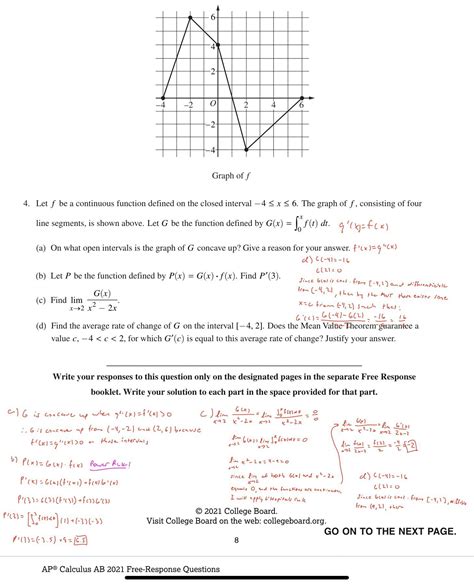 6
2
-4
-2
O
2
4
6
-2
-4
Graph of f
4. Let f be a continuous function defined on the closed interval −4 ≤ x ≤ 6. The graph of f, consisting of four
line segments, is shown above. Let G be the function defined by G(x) = ∫₀ˣ f(t) dt. g'(x)=f(x)
(a) On what open intervals is the graph of G concave up? Give a reason for your answer. f'(x)=g''(x)
d) G(-4)=-16
(b) Let P be the function defined by P(x) = G(x) · f(x). Find P′(3).
G(2)=0
since G(x) is cont. from [-4,2] and differentiable
from (-4,2), then by the MVT there exists some
(c) Find lim x→2 G(x) / x² − 2x.
x=c from (-4,2) such that:
G'(c) = G(-4)-G(2)
(d) Find the average rate of change of G on the interval [−4, 2]. Does the Mean Value Theorem guarantee a
value c, −4 < c < 2, for which G′(c) is equal to this average rate of change? Justify your answer.
Write your responses to this question only on the designated pages in the separate Free Response
booklet. Write your solution to each part in the space provided for that part.
a) G is concave up when g''(x)=f'(x)>0
∴ G is concave up from (-4,-2) and (2,6) because
f'(x)=g''(x)>0 on those intervals
b) P(x)=G(x)·f(x) Power Rule!
P'(x)=G(x)(f'(x))+f(x)G'(x)
P'(3)=G(3)(f'(3))+f(3)G'(3)
P'(3)=[∫₀³ f(t)dt](1)+(-3)(-3)
P'(3)=(-3.5)+9=5.5
c) lim x→2 G(x)/x²-2x = 0/0
lim x→2 G(x)=∫₀² f(t)dt=0
lim x→2 x²-2x=4-4=0
since lim of both G(x) and x²-2x
equals 0, and the functions are continuous
I will apply L'Hopital's Rule
lim x→2 G(x)/x²-2x = lim x→2 G'(x)/2x-2
lim x→2 f(x)/2x-2 = f(2)/2 = -4/2 = -2
d) G(-4)=-16
G(2)=0
since G(x) is cont. from [-4,2],
from (-4,2), then
© 2021 College Board.
Visit College Board on the web: collegeboard.org.
GO ON TO THE NEXT PAGE.
8
AP® Calculus AB 2021 Free-Response Questions